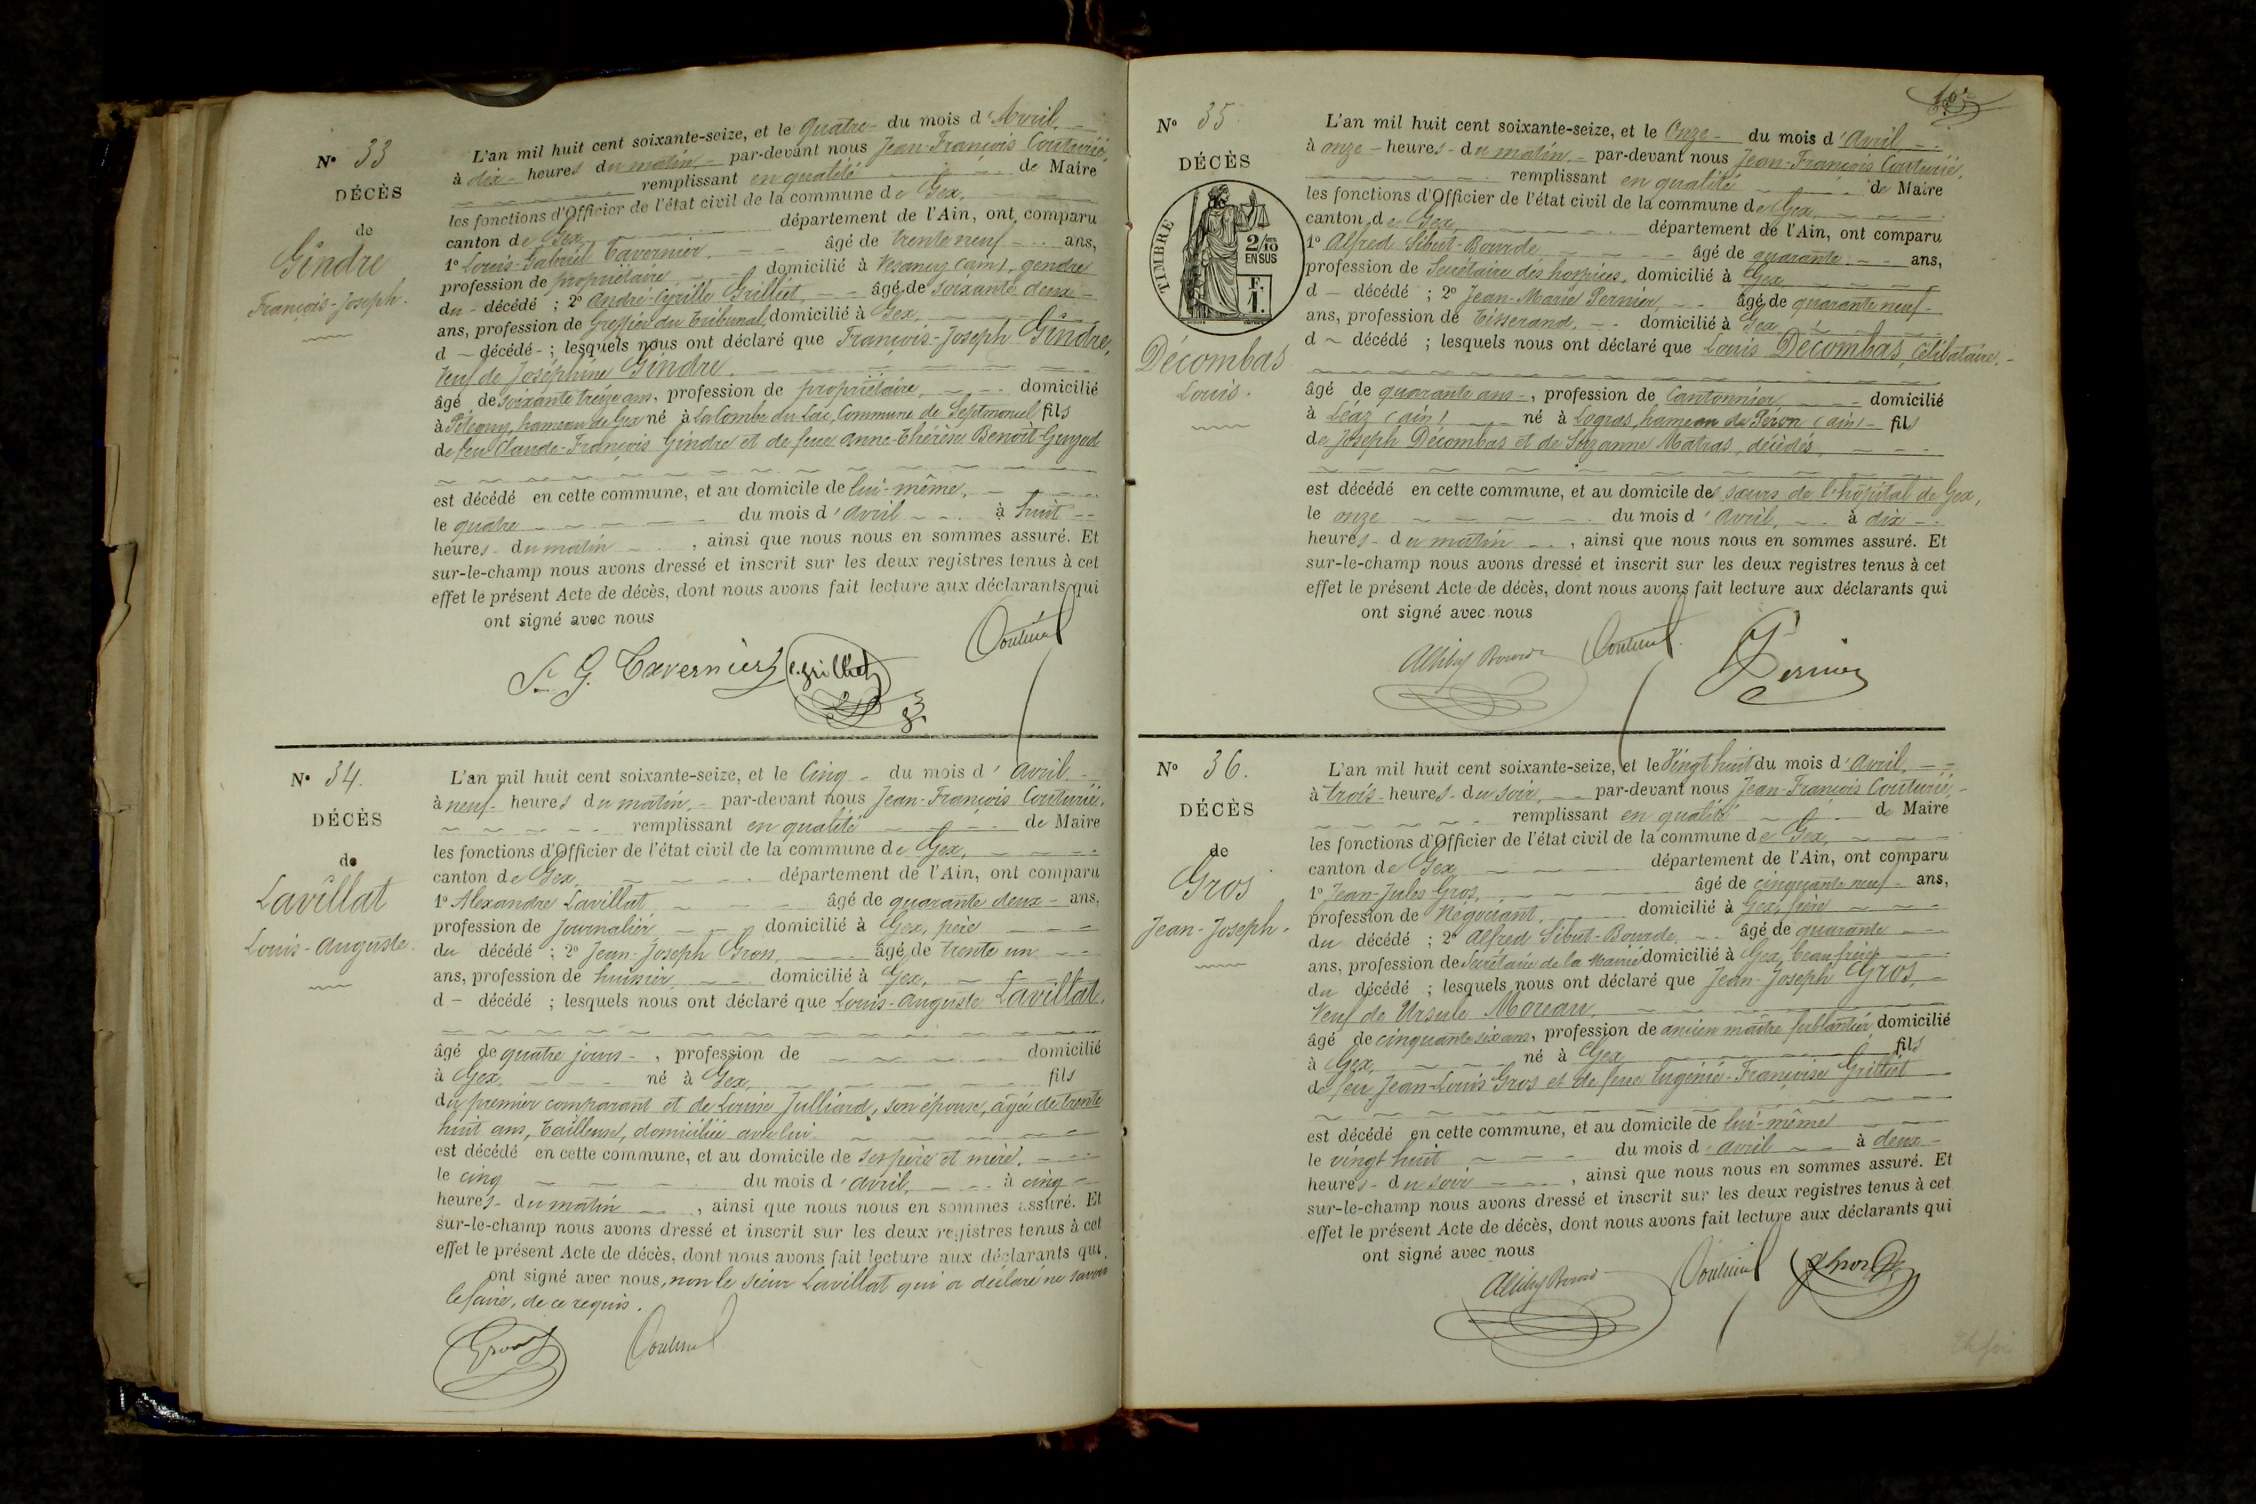 N° 33
DÉCÈS
de
Gindre
François-Joseph.
L'an mil huit cent soixante-seize, et le quatre du mois d'Avril
à dix heures du matin par-devant nous Jean-François Couturié,
remplissant en qualité de Maire
les fonctions d'Officier de l'état civil de la commune de Gex,
canton de Gex département de l'Ain, ont comparu
1° Louis-Gabriel Tavernier, âgé de trente neuf ans,
profession de propriétaire domicilié à Vesancy (ain), gendre
du décédé ; 2° André-Cyrille Grillet, âgé de soixante deux
ans, profession de Greffier du Tribunal, domicilié à Gex,
d décédé ; lesquels nous ont déclaré que François-Joseph Gindre,
Veuf de Joséphine Gindre.
âgé de soixante treize ans, profession de propriétaire, domicilié
à Pitegny, hameau de Gex né à La Combe du Lac, Commune de Septmoncel fils
de feu Claude-François Gindre et de feue Anne-Thérèse Benoît-Guyod
est décédé en cette commune, et au domicile de lui-même,
le quatre du mois d'avril à huit
heures du matin, ainsi que nous nous en sommes assuré. Et
sur-le-champ nous avons dressé et inscrit sur les deux registres tenus à cet
effet le présent Acte de décès, dont nous avons fait lecture aux déclarants qui
ont signé avec nous
G. Tavernier C. Grillet Couturié
N° 34.
DÉCÈS
de
Lavillat
Louis-Auguste.
L'an mil huit cent soixante-seize, et le Cinq du mois d'avril
à neuf heures du matin, par-devant nous Jean-François Couturié,
remplissant en qualité de Maire
les fonctions d'Officier de l'état civil de la commune de Gex,
canton de Gex, département de l'Ain, ont comparu
1° Alexandre Lavillat âgé de quarante deux ans,
profession de Journalier domicilié à Gex, père
du décédé ; 2° Jean-Joseph Gros, âgé de trente un
ans, profession de huissier, domicilié à Gex,
d décédé ; lesquels nous ont déclaré que Louis-Auguste Lavillat,
âgé de quatre jours, profession de domicilié
à Gex, né à Gex, fils
du premier comparant et de Louise Julliard, son épouse, âgée de trente
huit ans, Tailleuse, domiciliée avec lui
est décédé en cette commune, et au domicile de ses père et mère,
le cinq du mois d'avril, à cinq
heures du matin, ainsi que nous nous en sommes assuré. Et
sur-le-champ nous avons dressé et inscrit sur les deux registres tenus à cet
effet le présent Acte de décès, dont nous avons fait lecture aux déclarants qui
ont signé avec nous, non le sieur Lavillat qui a déclaré ne savoir
le faire, de ce requis.
Gros Couturié
N° 35
DÉCÈS
TIMBRE
2/10 EN SUS
F. 1.
Décombas
Louis.
L'an mil huit cent soixante-seize, et le Onze du mois d'avril
à onze heures du matin par-devant nous Jean-François Couturié,
remplissant en qualité de Maire
les fonctions d'Officier de l'état civil de la commune de Gex
canton de Gex, département de l'Ain, ont comparu
1° Alfred Sibut-Bourde âgé de quarante ans,
profession de Secrétaire des hospices, domicilié à Gex
d décédé ; 2° Jean-Marie Pernier, âgé de quarante neuf
ans, profession de Tisserand, domicilié à Gex
d décédé ; lesquels nous ont déclaré que Louis Décombas, Célibataire,
âgé de quarante ans, profession de Cantonnier, domicilié
à Léaz (ain) né à Logras, hameau de Péron (ain) fils
de Joseph Décombas et de Suzanne Matras, décédés,
est décédé en cette commune, et au domicile des sœurs de l'hôpital de Gex,
le onze du mois d'avril, à dix
heures du matin, ainsi que nous nous en sommes assuré. Et
sur-le-champ nous avons dressé et inscrit sur les deux registres tenus à cet
effet le présent Acte de décès, dont nous avons fait lecture aux déclarants qui
ont signé avec nous
Couturié Pernier
N° 36.
DÉCÈS
de
Gros
Jean-Joseph.
L'an mil huit cent soixante-seize, et le Vingt huit du mois d'avril,
à trois heures du soir, par-devant nous Jean-François Couturié,
remplissant en qualité de Maire
les fonctions d'Officier de l'état civil de la commune de Gex,
canton de Gex département de l'Ain, ont comparu
1° Jean-Jules Gros, âgé de cinquante neuf ans,
profession de Négociant, domicilié à Gex, frère
du décédé ; 2° Alfred Sibut-Bourde, âgé de quarante
ans, profession de Secrétaire de la Mairie domicilié à Gex, beau frère
du décédé ; lesquels nous ont déclaré que Jean-Joseph Gros,
Veuf de Ursule Moreau,
âgé de cinquante six ans, profession de ancien maître ferblantier domicilié
à Gex, né à Gex fils
de feu Jean-Louis Gros et de feue Eugénie-Françoise Grillet
est décédé en cette commune, et au domicile de lui-même
le vingt huit du mois d'avril à deux
heures du soir, ainsi que nous nous en sommes assuré. Et
sur-le-champ nous avons dressé et inscrit sur les deux registres tenus à cet
effet le présent Acte de décès, dont nous avons fait lecture aux déclarants qui
ont signé avec nous
Couturié